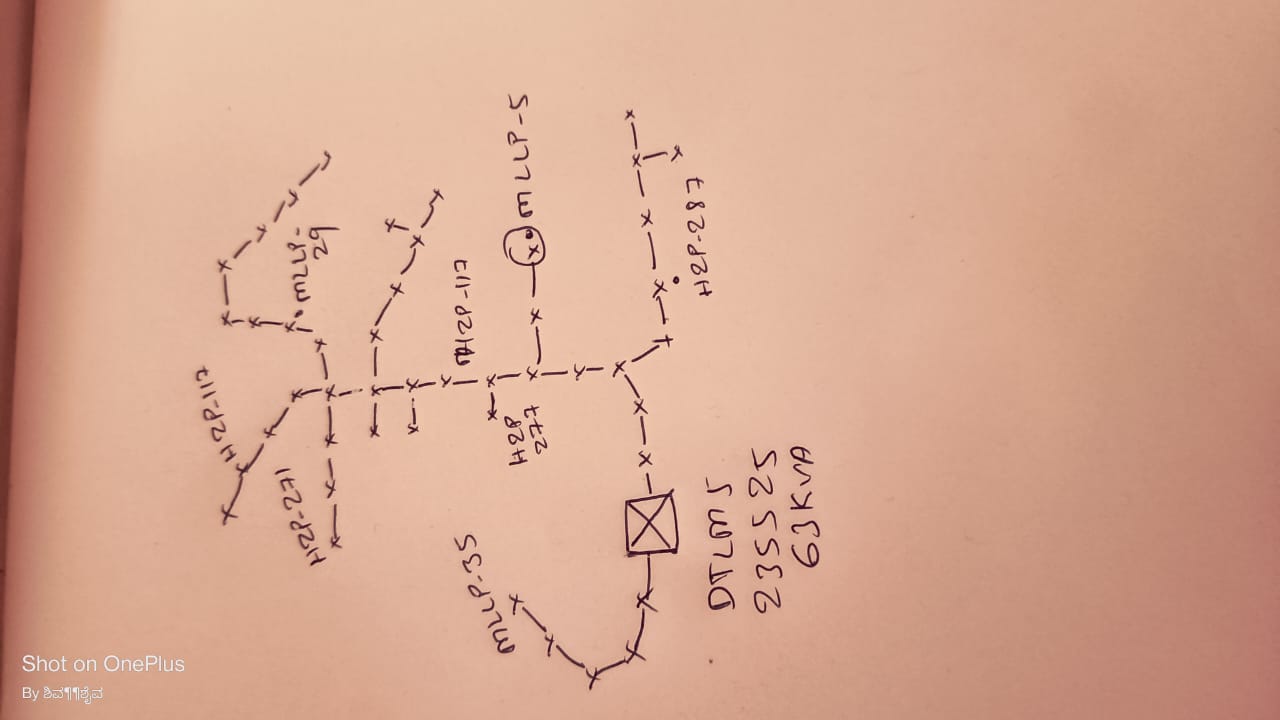 MLLP-5
MLLP-
29
H2P-287
H2P-117
H2P-117
H2P
277
H2P-271
MLLP-35
DTLMS
235525
63KVA
Shot on OnePlus
By ಶಿವ¶¶ಶೈವ